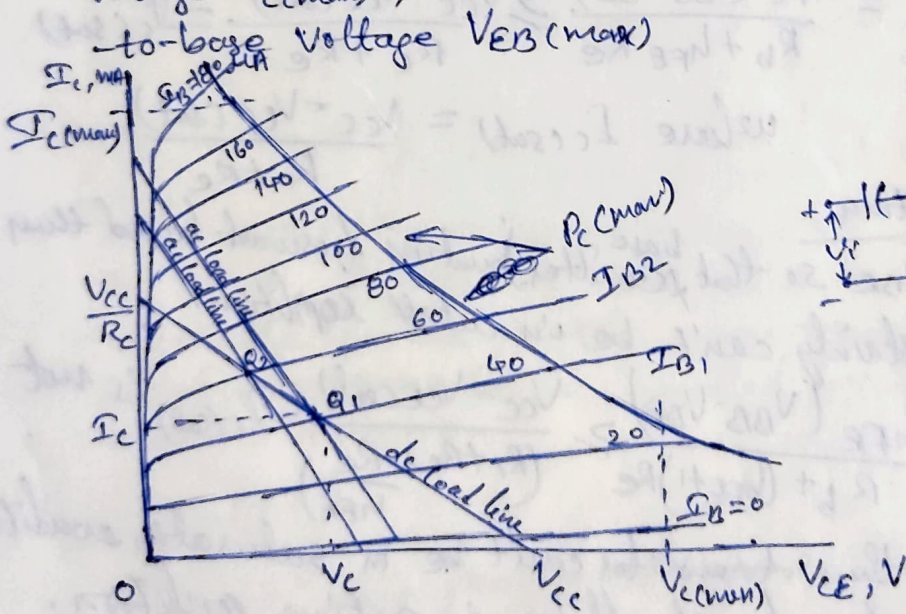 -to-base Voltage VEB(max)
Ic, mA
IB=180 MA
Ic(max)
160
140
120
100
80
60
40
20
Pc(max)
IB2
IB1
+
Vi
-
ac load line
ac load line
VCC
Rc
Q2
Q1
Ic
dc load line
IB=0
0
Vc
Vcc
Vc(max)
VCE, V